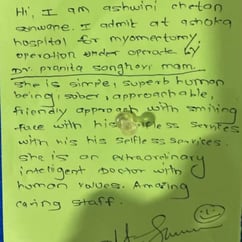 Hi, I am ashwini chetan
sonwane. I admit at ashoka
hospital for myomectomy
operation under operate by
Dr. pranita songhavi mam.
she is simple, superb human
being, sober, approachable,
friendly approach with smiling
face with his selfless services
with his his selfless services.
she is an extraordinary
intelligent Doctor with
human values. Amazing
caring staff.